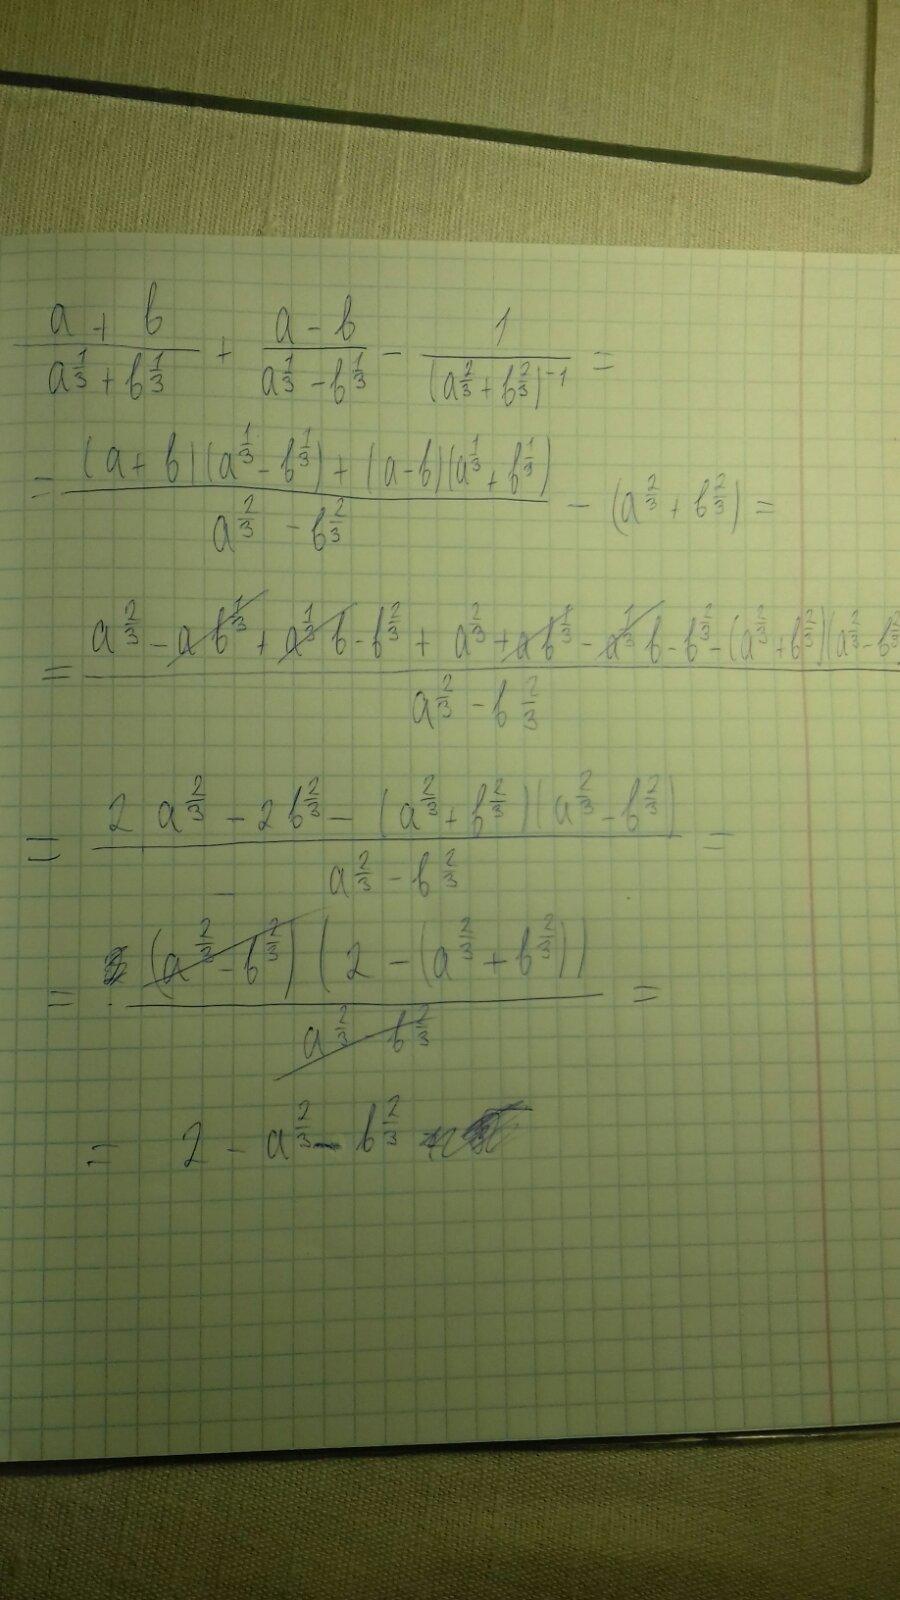 (a + b)/(a^(1/3) + b^(1/3)) + (a - b)/(a^(1/3) - b^(1/3)) - 1/(a^(2/3) + b^(2/3))^(-1) =
= ((a + b)(a^(1/3) - b^(1/3)) + (a - b)(a^(1/3) + b^(1/3)))/(a^(2/3) - b^(2/3)) - (a^(2/3) + b^(2/3)) =
= (a^(2/3) - ab^(1/3) + a^(1/3)b - b^(2/3) + a^(2/3) + ab^(1/3) - a^(1/3)b - b^(2/3) - (a^(2/3) + b^(2/3))(a^(2/3) - b^(2/3))/(a^(2/3) - b^(2/3))
= (2a^(2/3) - 2b^(2/3) - (a^(2/3) + b^(2/3))(a^(2/3) - b^(2/3)))/(a^(2/3) - b^(2/3)) =
= ((a^(2/3) - b^(2/3))(2 - (a^(2/3) + b^(2/3))))/(a^(2/3) - b^(2/3)) =
= 2 - a^(2/3) - b^(2/3)